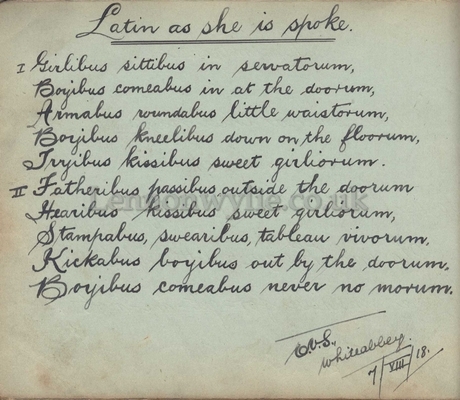 Latin as she is spoke.
I Girlibus sittibus in servatorum,
Boyibus comeabus in at the doorum,
Armabus roundabus little waistorum,
Boyibus kneelibus down on the floorum,
Tryibus kissibus sweet girliorum.
II Fatheribus passibus outside the doorum
Hearibus kissibus sweet girliorum,
Stampabus, swearibus, tableau vivorum.
Kickabus boyibus out by the doorum.
Boyibus comeabus never no morum.
O.V.S.,
Whiteabbey.
7/VIII/18.